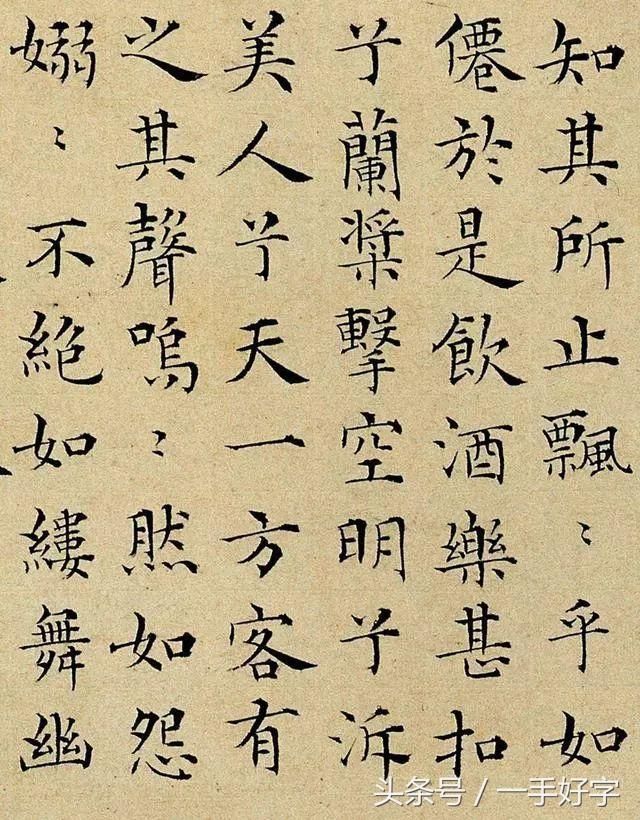 知其所止飄〻乎如
僊於是飲酒樂甚扣
兮蘭槳擊空明兮泝
美人兮天一方客有
之其聲嗚〻然如怨
嫋〻不絶如縷舞幽
头条号／一手好字